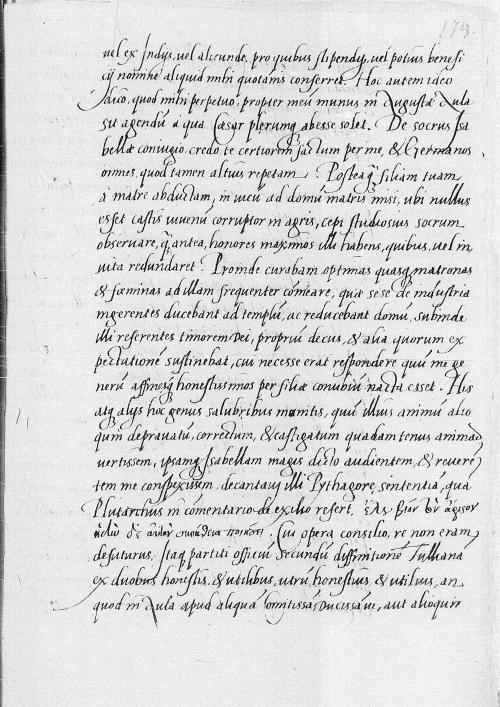 179.
uel ex Indijs, uel alicunde, pro quibus stipendijs, uel potius benefi
cij nomine aliquid mihi quotannis conferret. Hoc autem ideo
dico, quod mihi perpetuo, propter meū munus in Augustæ Aula
sit agendū a qua Cæsar plerumq abesse solet. De socrus Isa
bellæ coniugio, credo te certiorem factum per me, & Germanos
omnes, quod tamen altius repetam. Posteaq̄ filiam tuam
a matre abductam, in uicū ad domū matris misi, ubi nullus
esset castis iuuenū corruptor in agris, cepi studiosius socrum
obseruare, q̄ antea, honores maximos illi habens, quibus, uel in
uita redundaret. Proinde curabam optimas quasq matronas
& fœminas ad illam frequenter comeare, quæ sese de industria
ingerentes ducebant ad templū, ac reducebant domū, subinde
illi referentes timorem Dei, propriū decus, & alia quorum ex
pectationē sustinebat, cui necesse erat respondere quū me ge
nerū affinesq honestissimos per filiæ conubiū nacta esset. His
atq alijs hoc genus salubribus monitis, quū illius animū alio
qum deprauatū, correctum, & castigatum quadam tenus animad
uertissem, ipsamq Isabellam magis dicto audientem, & reueren
tem me conspexissem, decantaui illi Pythagoræ sententiā, quā
Plutarchus in comentario de exilio refert, ἑλοῦ βίον τὸν ἄριστον
ἡδὺν δὲ αὐτὸν συνήθεια ποιήσει. Cui opera consilio, re non eram
defuturus. Itaq partiti officiū secundū diffinitionē Tullianā
ex duobus honestis, & utilibus, utrū honestius, & utilius, an
quod in Aula apud aliquā Comitissā, Ducissāue, aut alioquin